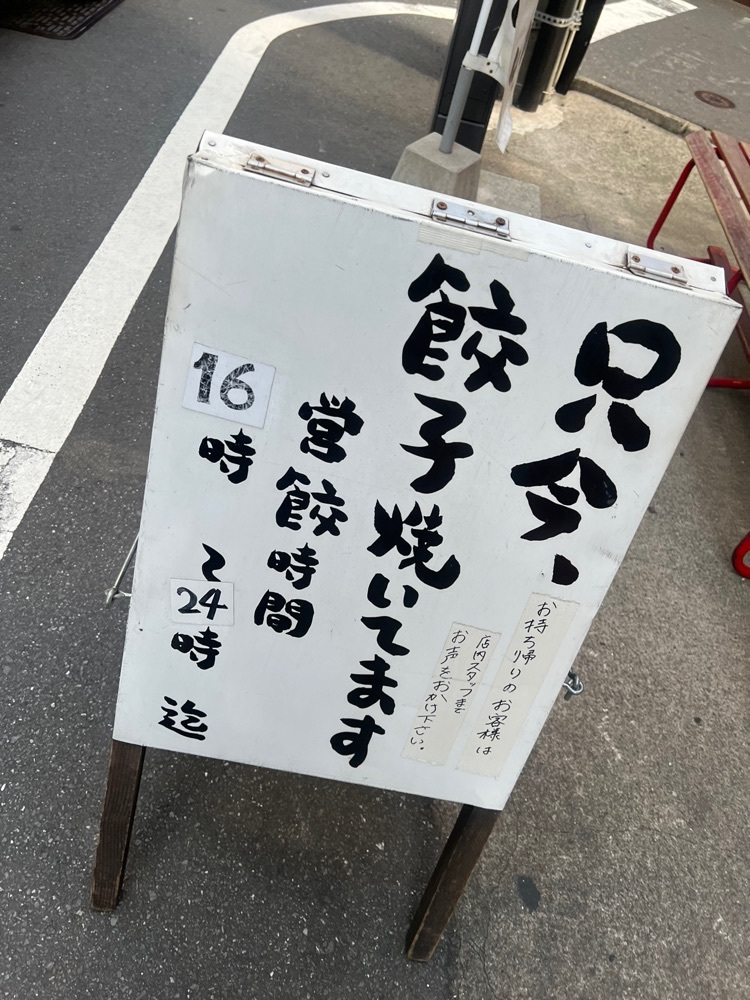 只今、
餃子焼いてます
お持ち帰りのお客様は
店内スタッフまで
お声をおかけ下さい。
営餃時間
16時〜24時迄